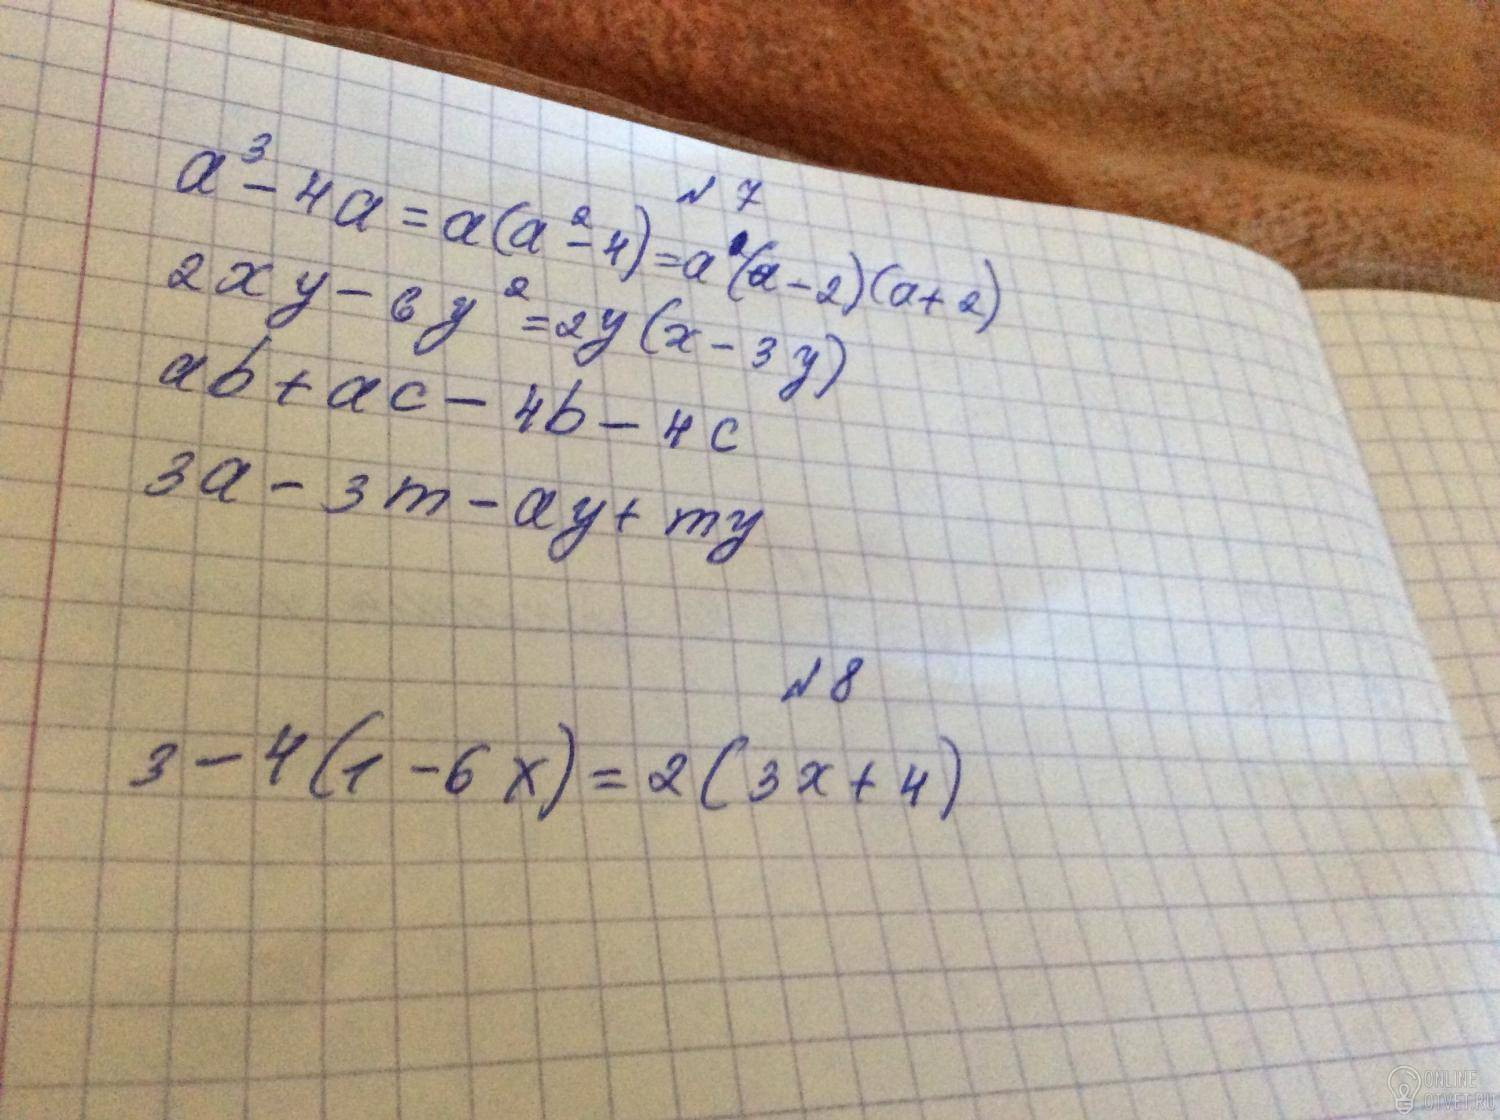 № 7
a³ - 4a = a(a² - 4) = a(a - 2)(a + 2)
2xy - 6y² = 2y(x - 3y)
ab + ac - 4b - 4c
3a - 3m - ay + my
№ 8
3 - 4(1 - 6x) = 2(3x + 4)
ONLINE
OTVET.RU